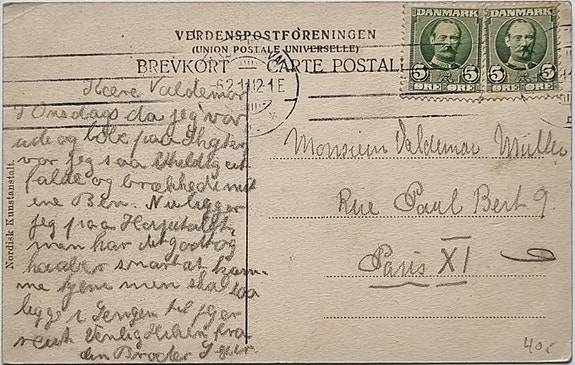 VERDENSPOSTFORENINGEN
(UNION POSTALE UNIVERSELLE)
BREVKORT CARTE POSTAL
DANMARK
5 5
ØRE ØRE
DANMARK
5 5
ØRE ØRE
6.2.11 12-1E
Nordisk Kunstanstalt.
Kære Valdemar
I Onsdags da jeg var
ude og løbe paa Skøjter
var jeg saa Uheldig at
falde og brækkede mit
ene Ben. Nu ligger
jeg paa Hospitalet
man har det godt og
haaber snart at kom-
me hjem men skal saa
ligge i Sengen til jeg er
rask Venlig Hilsen fra
din Broder
Monsieur Valdemar Müller
Rue Paul Bert 9.
Paris XI
40,-